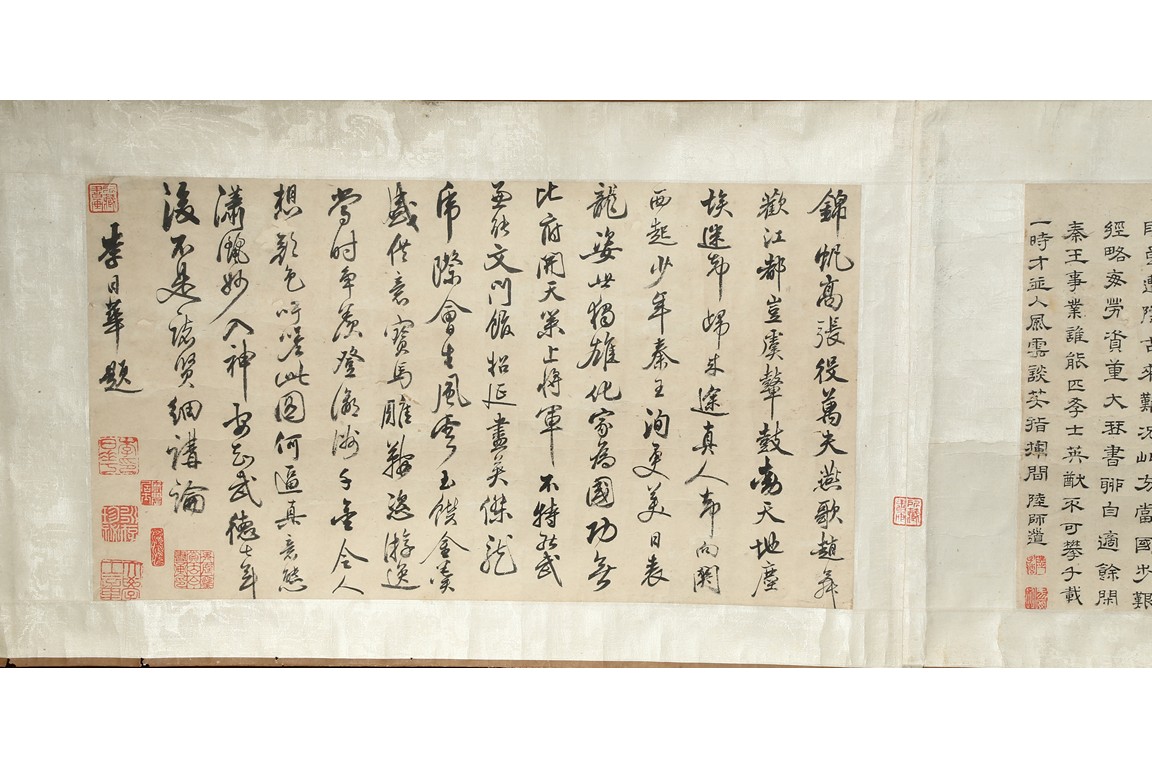 遭際古來難況此方當國步艱
經略每勞資董大琴書聊自適餘閑
秦王事業誰能匹學士英猷不可攀千載
一時才並人風雲談笑指揮間 陸師道
錦帆高張役萬夫燕歌趙舞
歡江都豈虞鼙鼓動天地塵
埃迷卻歸來途真人奮向關
西起少年秦王洵更美日表
龍姿世獨雄化家為國功無
比府開天策上將軍不特能武
兼能文門館招延盡英傑龍
虎際會生風雲玉饌金漿
盛供意寶馬雕鞍恣游逸
當時爭羨登瀛洲千金令人
想顏色吁嗟此圖何逼真意態
瀟灑妙入神要知武德七年
後不是諸賢細講論
李日華題